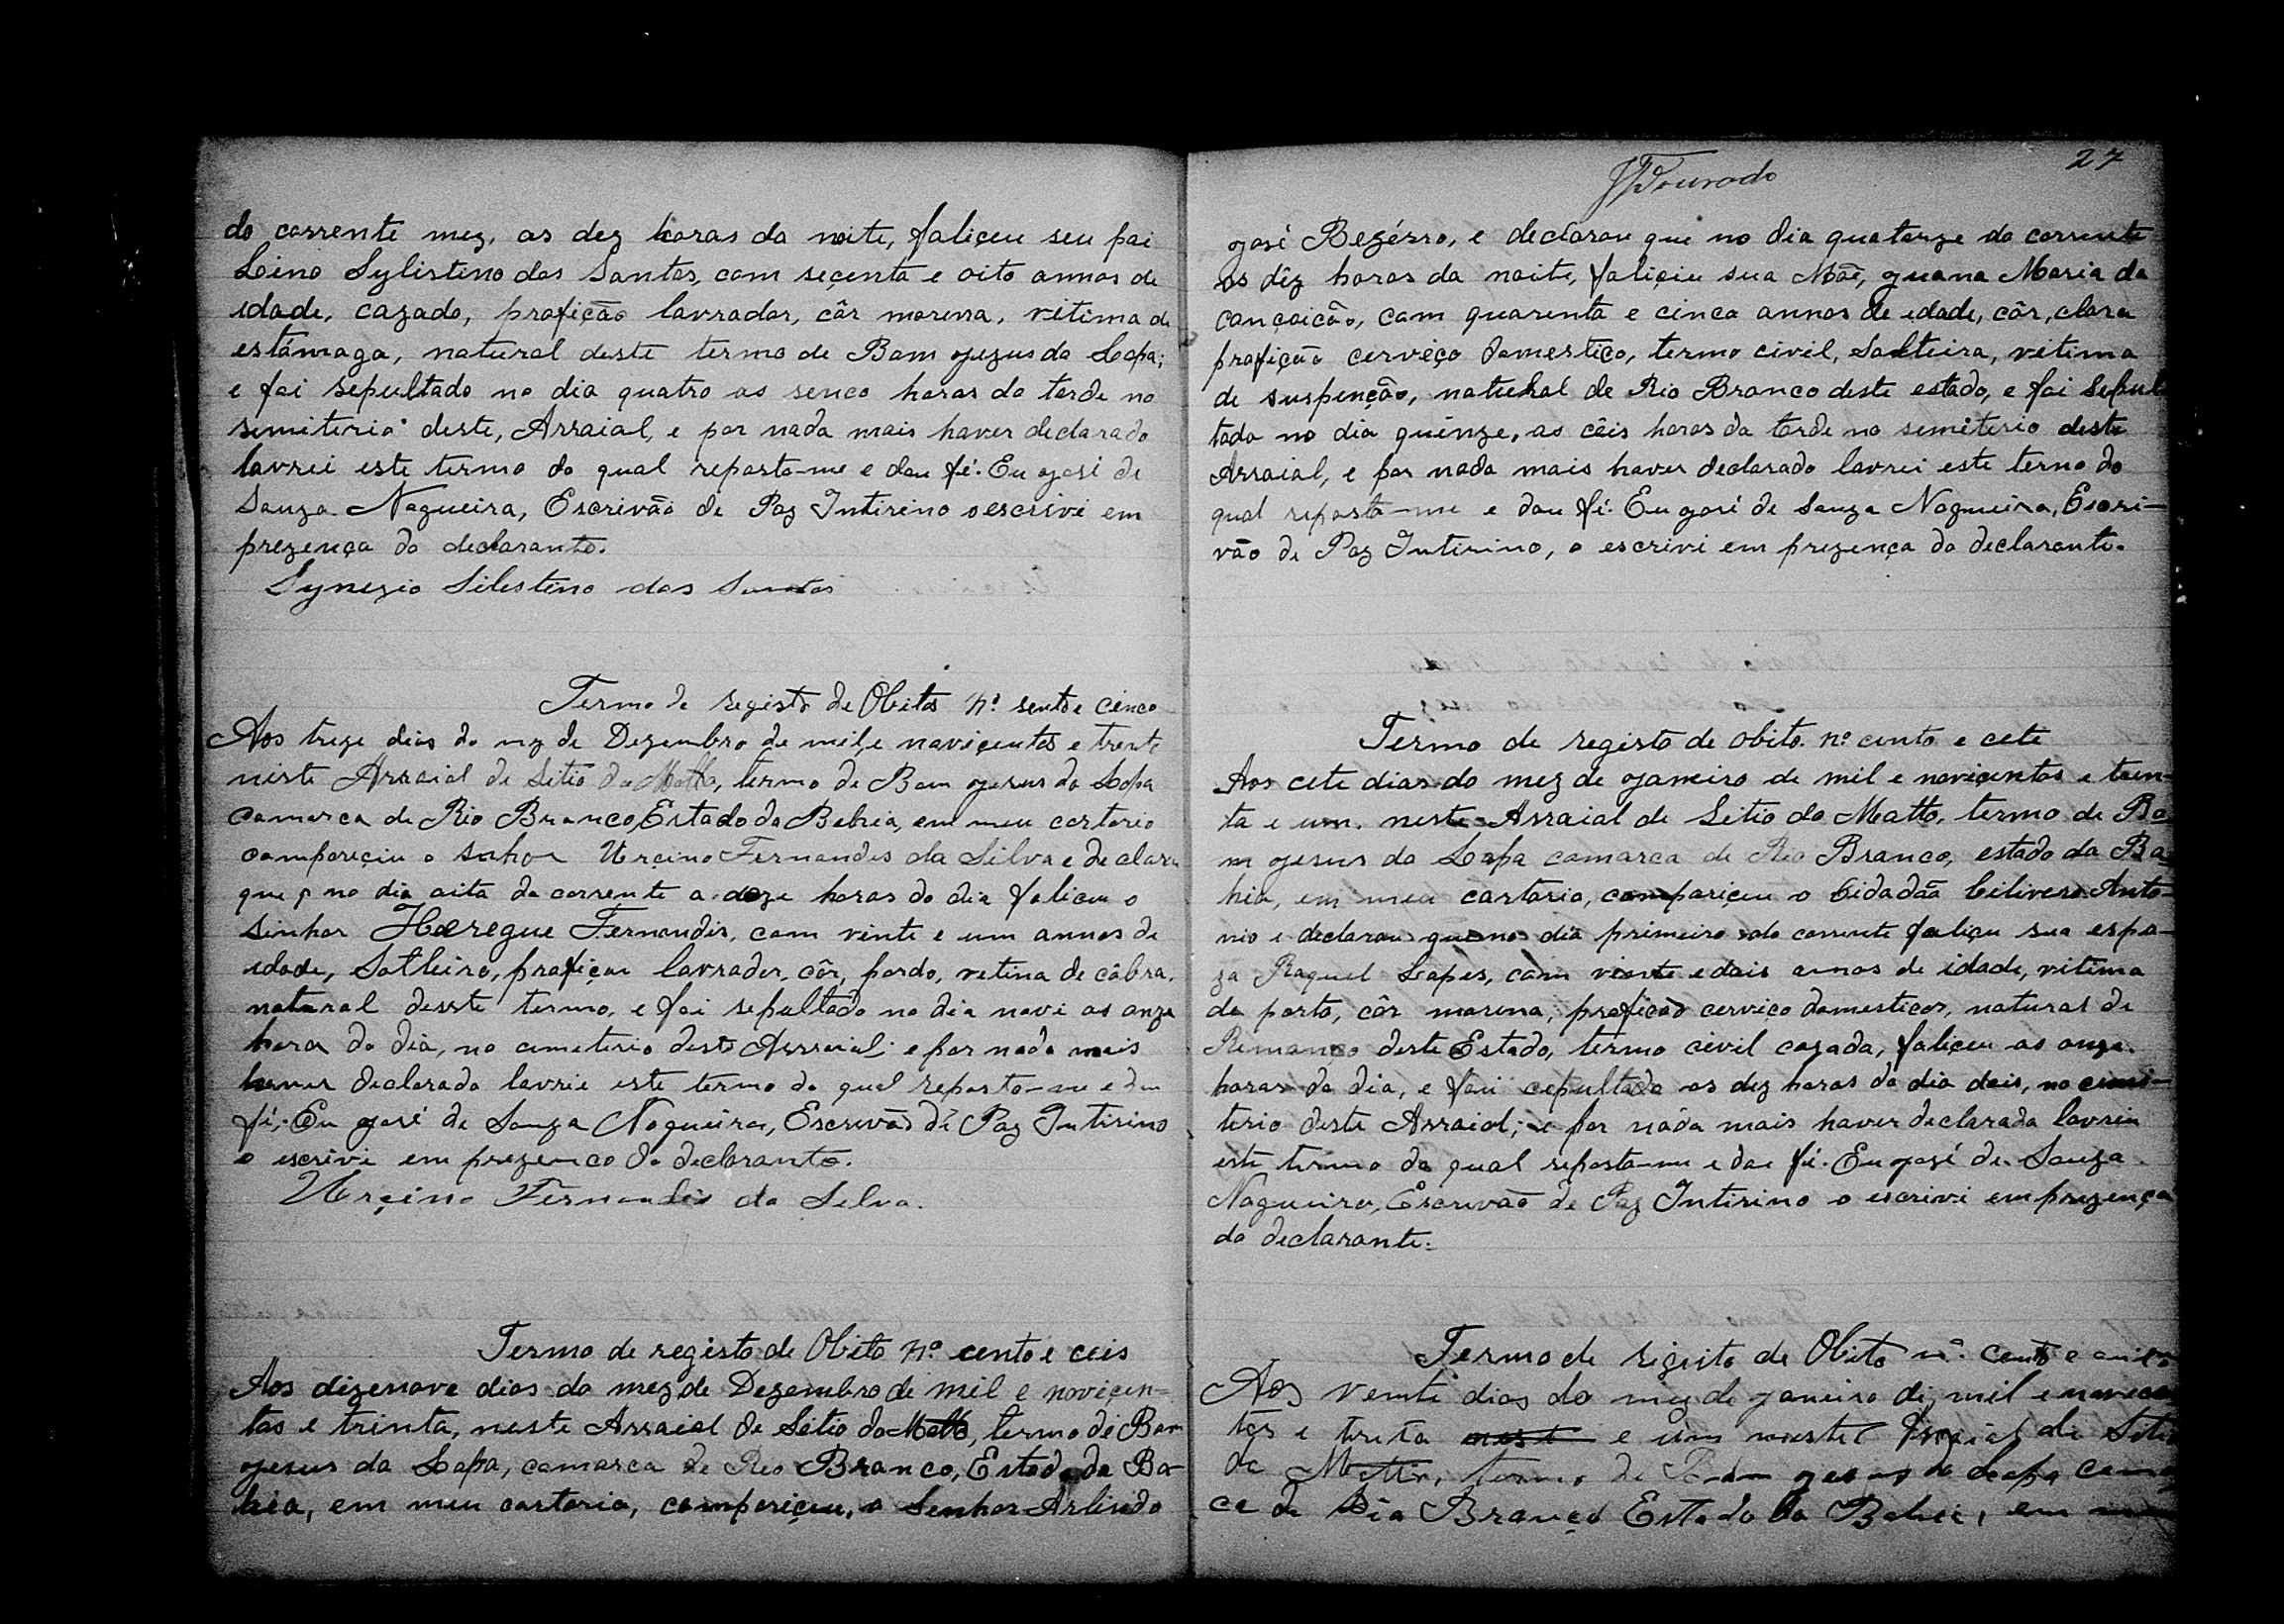 do corrente mez, as dez horas da noite, faliçeu seu pai
Lino Sylistino dos Santos, com seçenta e oito annos de
idade, cazado, profição lavrador, côr morena, vitima de
estâmago, natural deste termo de Bom Jezus da Lapa;
e foi sepultado no dia quatro as senco horas da tarde no
semiterio deste, Arraial, e por nada mais haver declarado
lavrei este termo do qual reporto-me e dou fé. Eu José de
Souza Nogueira, Escrivão de Paz Intirino o escrivi em
prezença do declarante.
Synezio Silestino dos Santos
Termo de registo de Obitos Nº sento e cinco
Aos treze dias do mz de Dezembro de mil e noviçentos e trenta
niste Arraial de Sitio do Matto, termo de Bom Jesus da Lapa
Comarca de Rio Branco, Estado da Bahia, em meu cartorio
compareçiu o senhor Urçino Fernandis da Silva e declarou
que no dia oito do corrente a doze horas do dia faliceu o
sinhor Heregue Fernandis, com vinte e um annos de
idade, Soltleiro, profiçao lavrador, côr, pardo, vetina de côbra,
natural desste termo, e foi sepultado no dia novi as onze
hora do dia, no cemeterio deste Arraial; e por nada mais
haver declarado lavrie este termo do qual reporto-me e dou
fé. Eu José de Souza Nogueira, Escrivão de Paz Intirino
o escrivi em prezenco do declarante.
Urçino Fernandis da Silva.
Termo de registo de Obito Nº cento e ceis
Aos dizenove dias do mez de Dezembro de mil e noviçen-
tos e trinta, neste Arraial de Sitio do Matto, termo de Bom
Jesus da Lapa, comarca de Rio Branco, Estado da Ba-
hia, em meu cartorio, compariçeu, o Senhor Arlindo
JDourado
27
José Bezérro, e declarou que no dia quatorze do corrente
as dêz horas da noite, faliçiu sua Mãe, Juana Maria da
Conçoicão, com quarenta e cinco annos de edade, côr, clara
profição cerviço domestiço, termo civil, Solteira, vitima
de suspenção, natural de Rio Branco deste estado, e foi sepul
tada no dia quinze, as cêis horas da tarde no semiterio deste
Arraial, e por nada mais haver declarado lavrei este termo do
qual reposto-me e dou fé. Eu José de Souza Nogueira, Escri-
vão de Paz Intirino, o escrivi em prezença do declarante.
Termo de registo de obito. nº cento e cete
Aos cete dias do mez de Janeiro de mil e noviçentos e trin-
ta e um. neste Arraial de Sitio do Matto, termo de Bo-
m Jesus da Lapa comarca de Rio Branco, estado da Ba-
hia, em meu cartorio, compariçeu o Cidadão Cilivero Anto-
nio e declarou que no dia primeiro do corrente faliçu sua espo-
za Raquel Lopes, com viente e dois annos de idade, vitima
de parto, côr morena, profição cerviço domesticos, natural de
Remanso deste Estado, termo civil cazada, faliçeu as onze
horas do dia, e foii cepultada as dez horas do dia dois, no cemi-
terio deste Arraial; e por nada mais haver declarada lavrei
este termo do qual reposto-me e dou fé. Eu José de Souza
Nogueira, Escrivão de Paz Intirino o escrivi em prezença
do declarante.
Termo de rigisto de Obito nº. cento e oito
Aos vente dias do mez de Janeiro de mil e novecen
tos e trinta e um neste Arraial de Sitio
do Matto, termo de Bom Jesus da Lapa comar
ca de Rio Branco Estado da Bahia, em